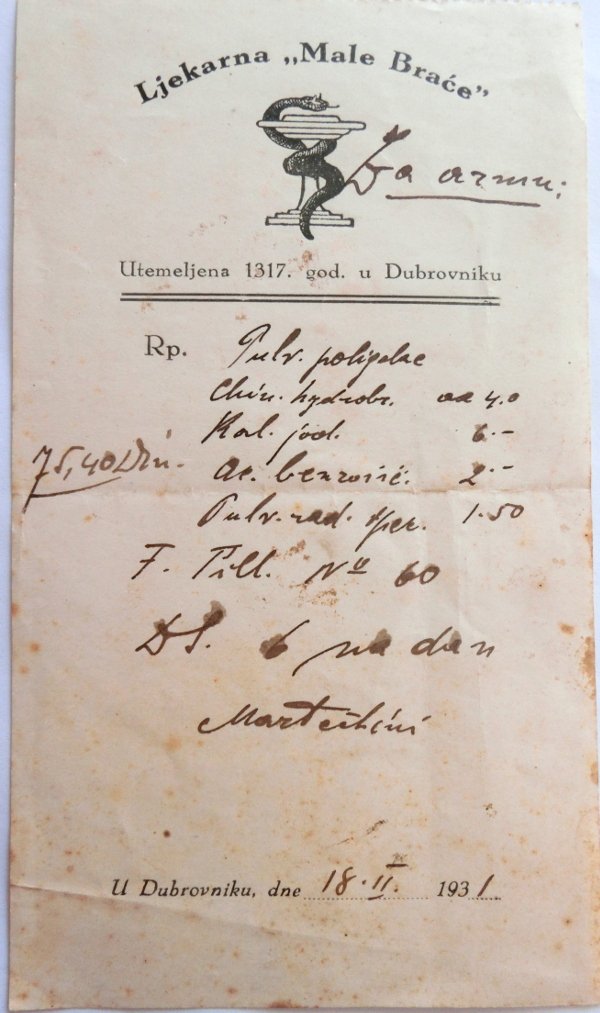 Ljekarna „Male Braće"
Utemeljena 1317. god. u Dubrovniku
Rp. Pulv. poligalae
Chin. hydrobr. aa 4.0
Kal. jod. 6.-
75,40 Din.
Ac. benzoic. 2.-
Pulv. rad. 1.50
F. Pill. No 60
DS. 6 na dan
U Dubrovniku, dne 18.II. 1931.